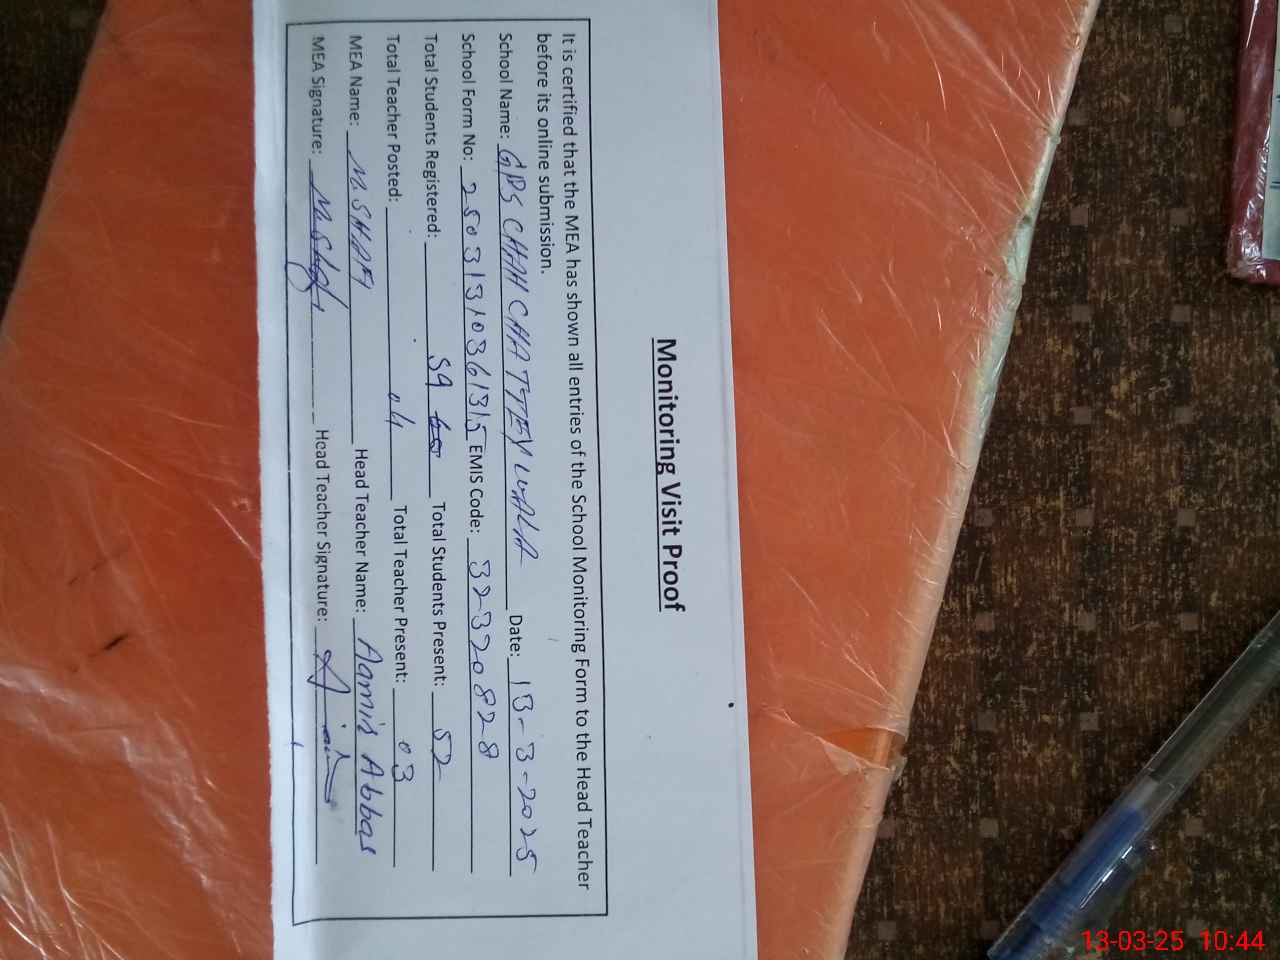 Monitoring Visit Proof
It is certified that the MEA has shown all entries of the School Monitoring Form to the Head Teacher
before its online submission.
School Name: GPS CHAH CHATTEY WALA Date: 13-3-2025
School Form No: 25031310361315 EMIS Code: 32320828
Total Students Registered: 59 Total Students Present: 52
Total Teacher Posted: 04 Total Teacher Present: 03
MEA Name: M. SHAFI Head Teacher Name: Aamir Abbas
MEA Signature: M. Shafi Head Teacher Signature:
13-03-25 10:44